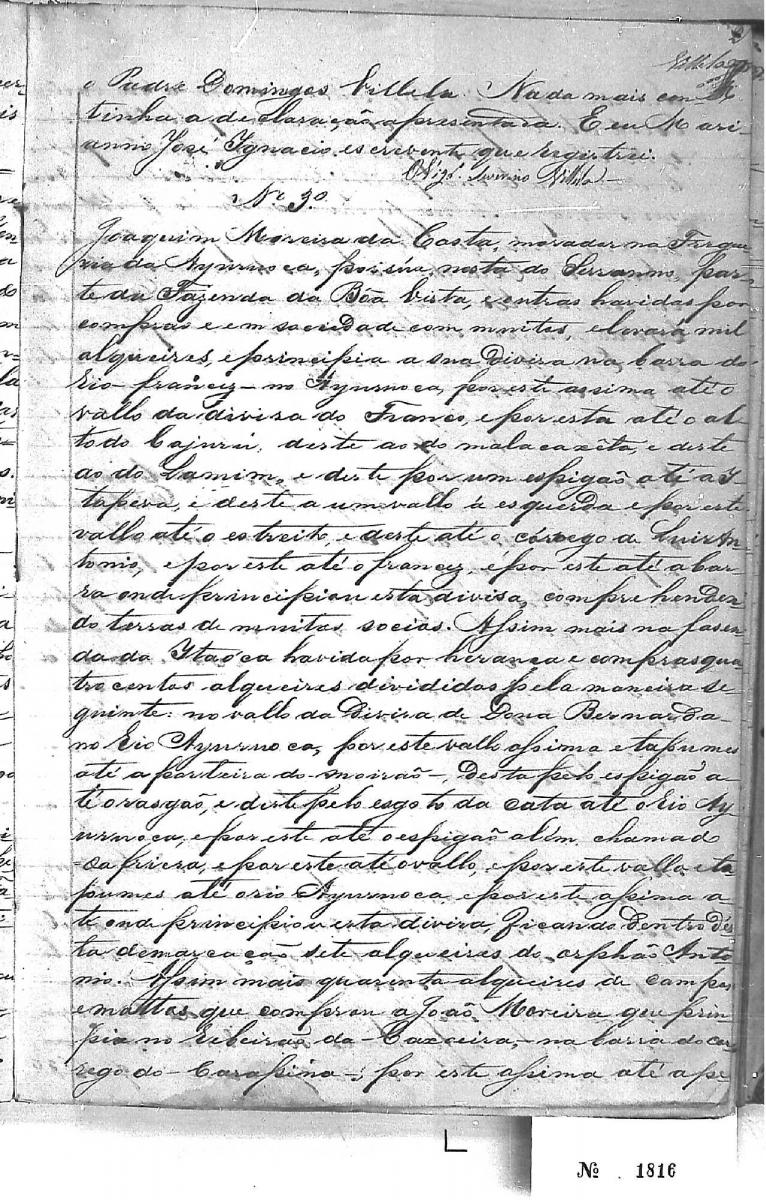 Villela
e Padre Domingos Villela. Nada mais con
tinha a declaração apresentada. E eu Mari
anno José Ignacio, escrevente que registrei.
Vigº Villela
Nº 9º
Joaquim Moreira da Costa, morador na Fregue
zia da Ayuruoca, possúe, nesta do Serranno, par
te da Fazenda da Bôa Vista, e outras havidas por
compras e em sociedade com muitos, e levará mil
alqueires, e principia a sua divisa na barra do
Rio francez no Ayuruoca, por este assima até o
vallo da divisa do Franco, e por esta até o al
to do Cajurú, deste ao do malacaxêta, e deste
ao do Lamim, e deste por um espigaõ até a I
tapeva, e deste a um vallo á esquerda e por este
vallo até o estreito, e deste até o córrego de Luis An
tonio, e por este até o francez, e por este até a bar
ra onde principiou esta divisa, comprehenden
do terras de muitos socios. Assim mais na fasen
da da Itaóca havida por herança e compras qua
trocentos alqueires divididos pela maneira se
guinte: no vallo da Divisa de Dona Bernarda
no Rio Ayuruoca, por este vallo assima e tapumes
até a porteira do moiraõ, desta pelo espigaõ a
té o rasgaõ, e deste pelo esgoto da cata até o Rio Ay
uruoca, e por este até o espigaõ além, chamad
o da frieza, e por este até o vallo, e por este vallo e ta
pumes até o rio Ayuruoca, e por este assima a
té onde principiou esta divisa, ficando dentro dés
ta demarcaçaõ sete alqueires do orphaõ Anto
nio. Assim mais quarenta alqueires de campos
e mattos que comprou a Joaõ Moreira que prin
pia no Ribeiraõ da Caxoeira, na barra do cor
rego do Carapina; por este assima até a pe
Nº 1816